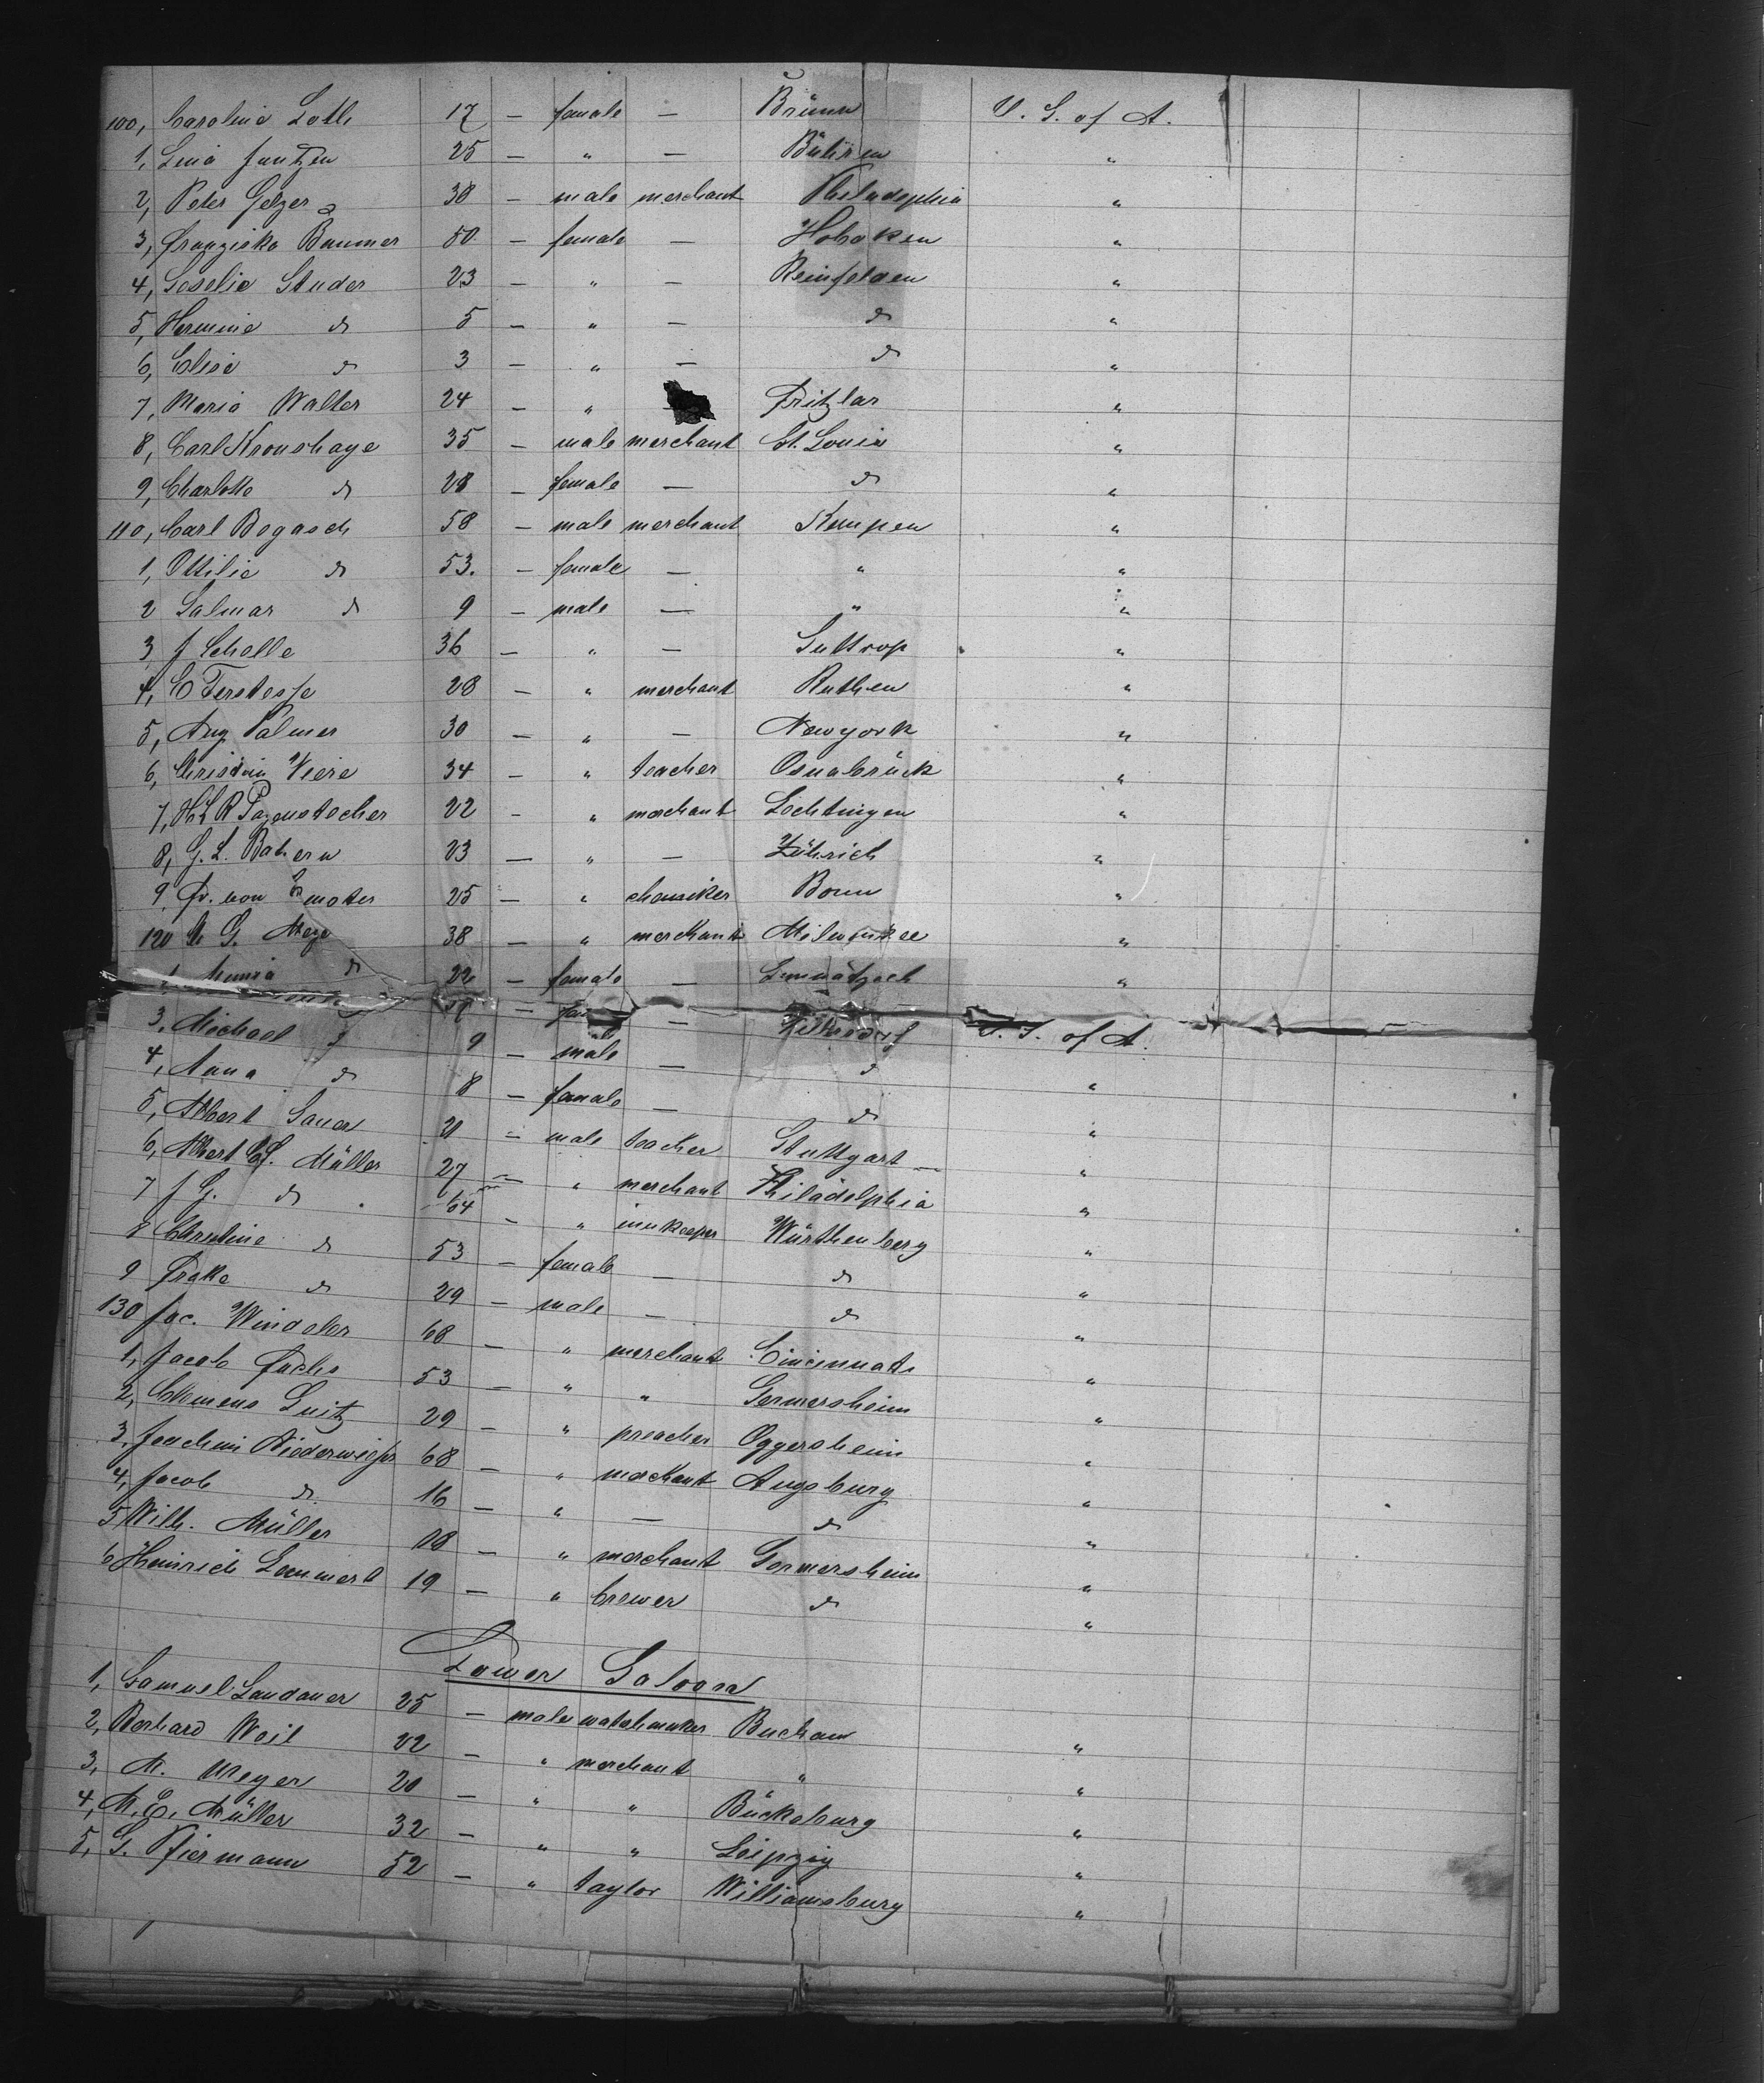 100, Caroline Loth 17 — female — Brünn U. S. of A.
1, Lina Jantzen 25 — " — Bühren "
2, Peter Gelzer 38 — male merchant Philadephia "
3, Franziska Baumer 50 — female — Hoboken "
4, Roselie Studer 23 — " — Reinfelden "
5, Hermine do 5 — " — do "
6, Elise do 3 — " — do "
7, Maria Walter 24 — " — Fritzlar "
8, Carl Kronshage 35 — male merchant St. Louis "
9, Charlotte do 28 — female — do "
110, Carl Bogasch 58 — male merchant Kempen "
1, Ottilie do 53. — female — " "
2 Salmar do 9 — male — " "
3 J Schelle 36 — " — Suttrop "
4, C Terstesse 28 — " merchant Ruthen "
5, Aug Palmer 30 — " — Newyork "
6, Veere 34 — " teacher Osnabrück "
7, H R Pagenstecher 22 - " merchant Lechtingen "
8, G. L. Bahern 23 — " — Zührich "
9, Fr. von 25 — " chemiker Bonn "
120 G. Meye 38 — " merchant Milwaukee "
1 do 22 — female — "
— — U. S. of A.
3, Michael do 9 — male — do "
4, Anna do 8 — female — do "
5, Albert Sauer 21 — male teacher Stuttgart "
6, Albert Müller 27 — " merchant Philadelphia "
7 J G. do 64 — " innkeeper Würthenberg "
8 Christine do 53 — female — do "
9 do 29 — male — do "
130 Jac. Windeler 68 — " merchant Cincinnati "
1, Jacob Fuchs 53 — " " Germersheim "
2, Clemens Luitz 29 — " preacher Oggersheim "
3, Joachim Niederwieser 68 — " merchant Augsburg "
4, Jacob do. 16 — " — do "
5 Wilh. Müller 18 — " merchant Germersheim "
6 Heinrich Lammert 19 — " brewer do "
Lower Saloon
1, Samuel Landauer 25 — male watchmaker Buchau "
2, Berhard Weil 22 — " merchant " "
3, M. Meyer 20 — " " Bückeburg "
4, M. E. Müller 32 — " " Leipzig "
5, G. Pfiermann 52 — " taylor Williamsburg "